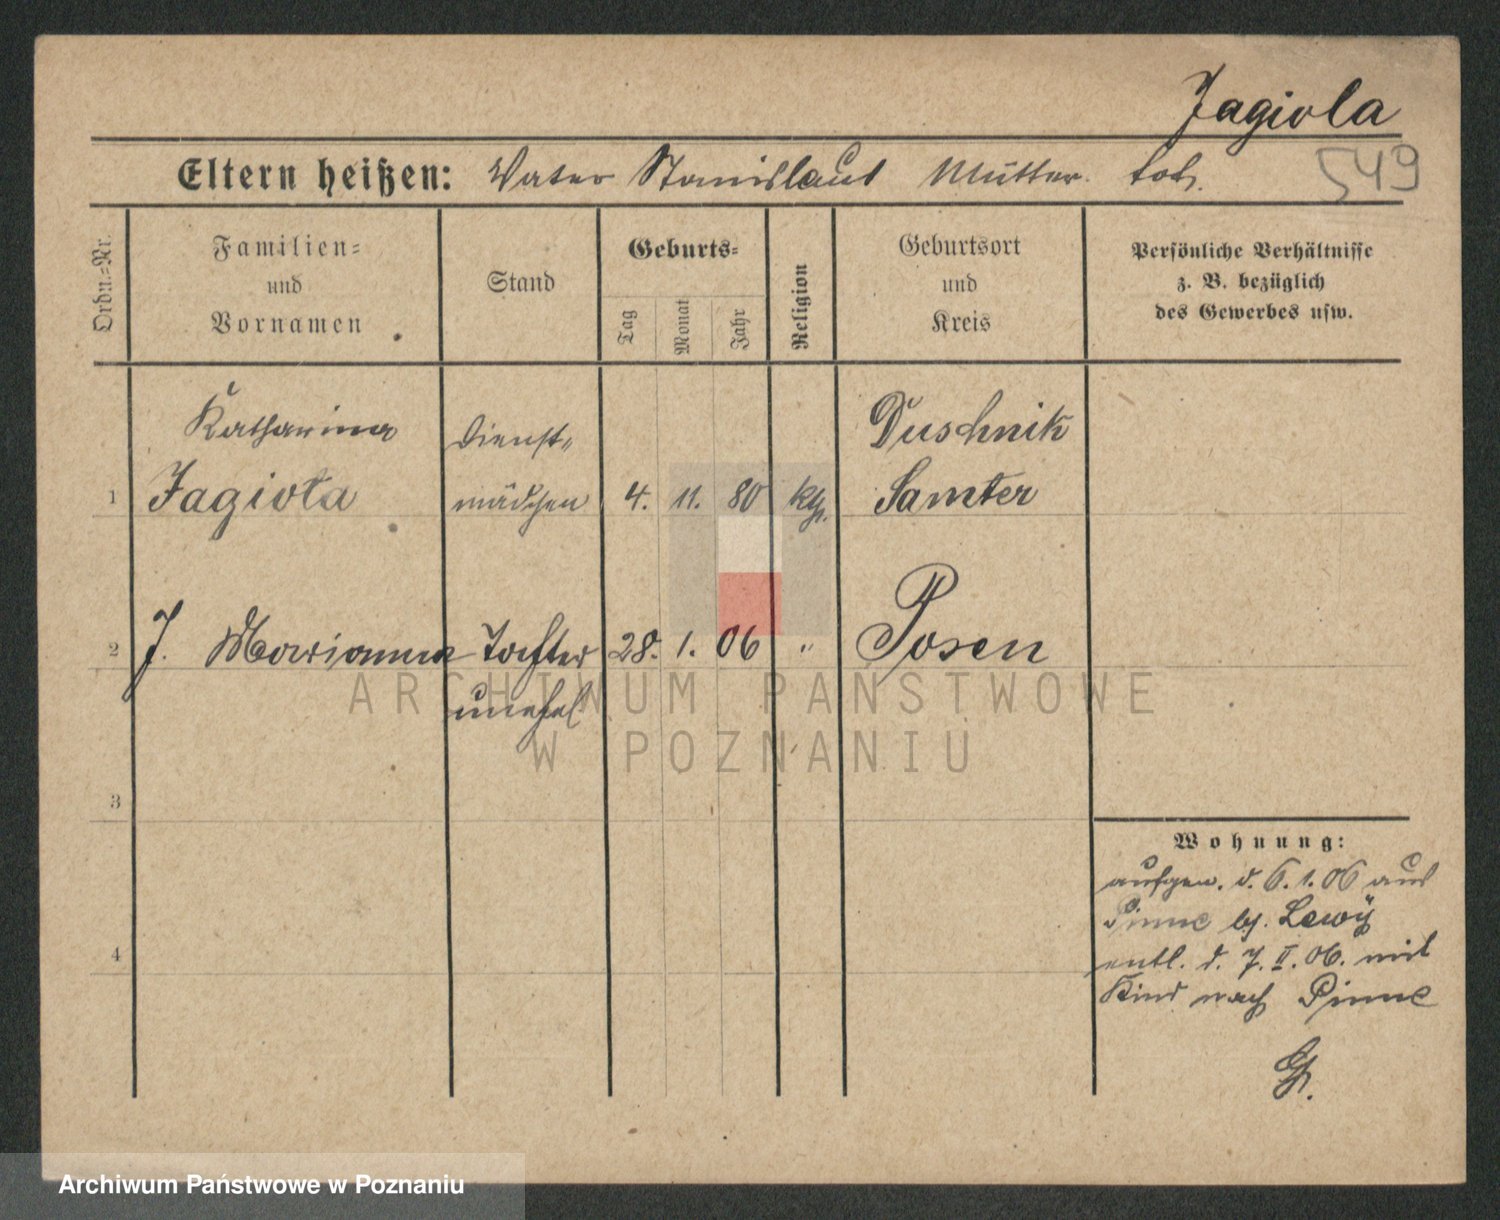 Jagiola
549
Eltern heißen: Vater Stanislaus Mutter tot.
Ordn.-Nr.
Familien-
und
Vornamen
Stand
Geburts-
Tag
Monat
Jahr
Religion
Geburtsort
und
Kreis
Persönliche Verhältnisse
z. B. bezüglich
des Gewerbes usw.
Katharina Dienst- Duschnik
1 Jagiola mädchen 4. 11. 80 kth. Samter
2 J. Marianna Tochter 28. 1. 06 " Posen
unehel.
ARCHIWUM PAŃSTWOWE
W POZNANIU
3
Wohnung:
aufgen. d. 6.1.06 aus
Pinne bei Lewÿ
4
entl. d. 7.II.06. mit
Kind nach Pinne
Archiwum Państwowe w Poznaniu